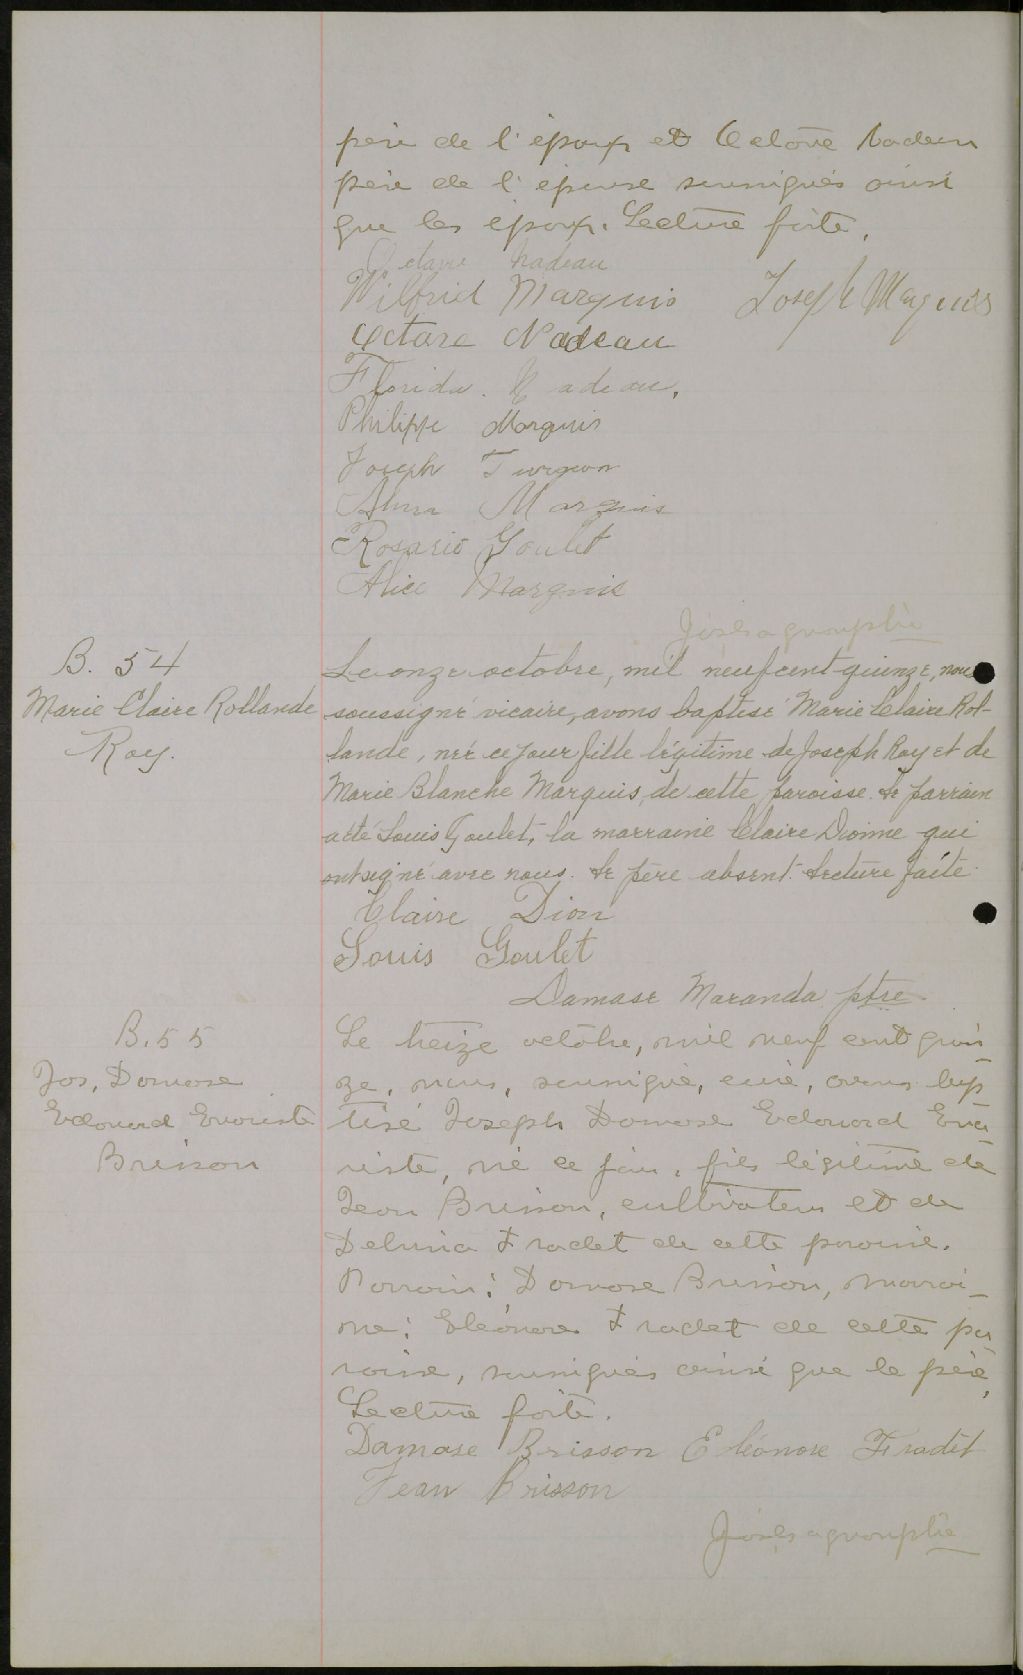 père de l'époux et Octave Nadeau
père de l'épouse soussignés ainsi
que les époux. Lecture faite.
Octave Nadeau
Wilfrid Marquis Joseph Marquis
Octave Nadeau
Florida Nadeau.
Philippe Marquis
Joseph Turgeon
Alma Marquis
Rosario Goulet
Alice Marquis
ptre
B. 54
Marie Claire Rollande
Roy.
Le onze octobre, mil neuf cent quinze, nous
soussigné vicaire, avons baptisé Marie Claire Rol-
lande, née ce jour fille légitime de Joseph Roy et de
Marie Blanche Marquis, de cette paroisse. Le parrain
a été Louis Goulet, la marraine Claire Dionne qui
ont signé avec nous. Le père absent. Lecture faite.
Claire Dion
Louis Goulet
Damase Maranda ptre
B. 55
Jos. Damase
Edouard Evariste
Brisson
Le treize octobre, mil neuf cent quin-
ze, nous, soussigné, curé, avons bap
tisé Joseph Damase Edouard Eva-
riste, né ce jour, fils légitime de
Jean Brisson, cultivateur et de
Delvina Fradet de cette paroisse.
Parrain: Damase Brisson, marrai-
ne: Eléonore Fradet de cette pa
roisse, soussignés ainsi que le père,
Lecture faite.
Damase Brisson Eléonore Fradet
Jean Brisson
ptre